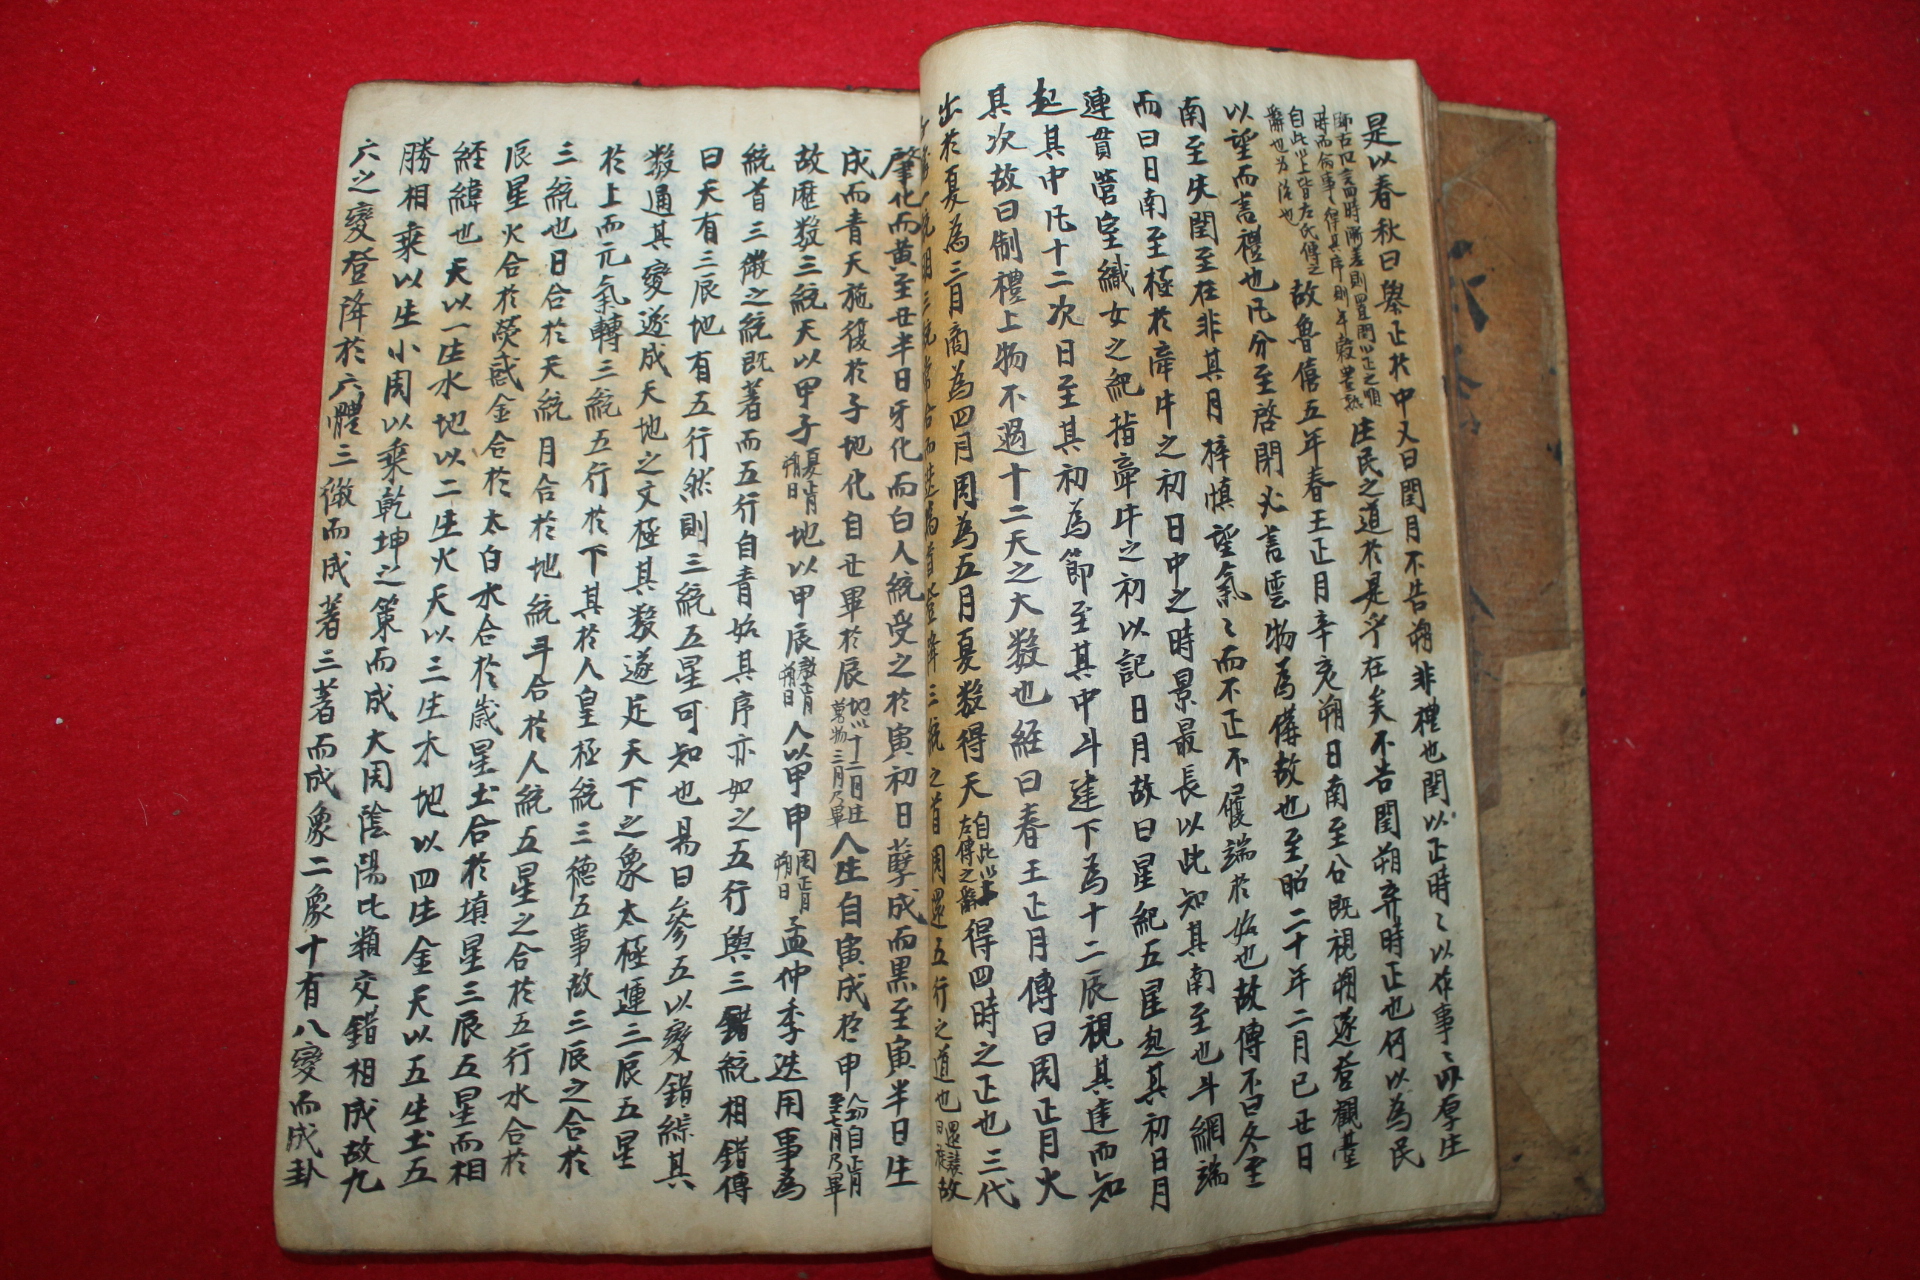 是以春秋曰擧正於中又曰閏月不告朔非禮也閏以正時〻以作事〻以厚生
師古曰言四時漸差則置閏以正之順時而命事〻得其序則年穀豊熟生民之道於是乎在矣不告閏朔弃時正也何以為民
自此以上皆左氏傳之辭也為治也故魯僖五年春王正月辛亥朔日南至公既視朔遂登觀臺
以望而書禮也凡分至啓閉必書雲物為備故也至昭二十年二月己丑日
南至失閏至在非其月梓愼望氣〻而不正不履端於始也故傳不曰冬至
而曰日南至極於牽牛之初日中之時景最長以此知其南至也斗綱端
連貫營室織女之紀指牽牛之初以記日月故曰星紀五星起其初日月
起其中凡十二次日至其初為節至其中斗建下為十二辰視其建而知
其次故曰制禮上物不過十二天之大數也經曰春王正月傳曰周正月火
出於夏為三月商為四月周為五月夏數得天自此以上左傳之辭得四時之正也三代
之首周還五行之道也還讀曰旋故
肇化而黃至丑半日牙化而白人統受之於寅初日孽成而黑至寅半日生
成而青天施復於子地化自丑畢於辰地以十二月生萬物三月乃畢人生自寅成於申人功自正月至七月乃畢
故歷數三統天以甲子夏正月朔日地以甲辰殷正月朔日人以甲申周正月朔日孟仲季迭用事為
統首三微之統既著而五行自青始其序亦如之五行與三統相錯傳
曰天有三辰地有五行然則三統五星可知也易曰參五以變錯綜其
數通其變遂成天地之文極其數遂定天下之象太極運三辰五星
於上而元氣轉三統五行於下其於人皇極統三德五事故三辰之合於
三統也日合於天統月合於地統斗合於人統五星之合於五行水合於
辰星火合於熒惑金合於太白水合於歲星土合於塡星三辰五星而相
經緯也天以一生水地以二生火天以三生木地以四生金天以五生土五
勝相乘以生小周以乘乾坤之策而成大周陰陽比類交錯相成故九
六之變登降於六體三微而成著三著而成象二象十有八變而成卦